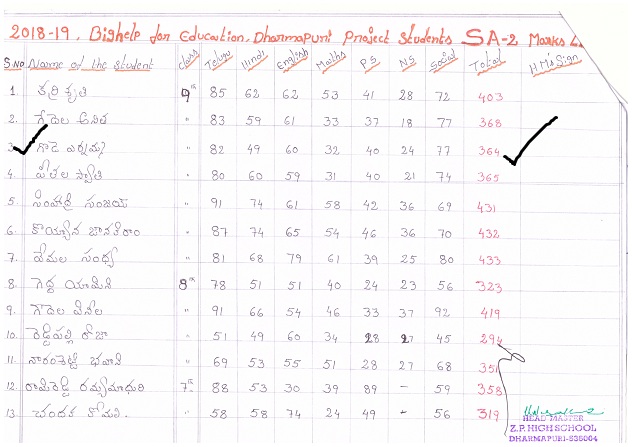 2018-19, Bighelp for Education, Dharmapuri Project Students SA-2 Marks
S.No Name of the student class Telugu Hindi English Maths P.S N.S Social Total H.M's Sign
1. కృతి 9th 85 62 62 53 41 28 72 403
2. గేదెల అనిత " 83 59 61 33 37 18 77 368
3. గౌడ " 82 49 60 32 40 24 77 364
4. " 80 60 59 31 40 21 74 365
5. సింహాద్రి సంజయ్ " 91 74 61 58 42 36 69 431
6. కొయ్యాన జానకిరాం " 87 74 65 54 46 36 70 432
7. వేమల సంధ్య " 81 68 79 61 39 25 80 433
8. గెద్ద యామిని 8th 78 51 51 40 24 23 56 323
9. గౌదల వినీల " 91 66 54 46 33 37 92 419
10. రెడ్డిపల్లి రోజా " 51 49 60 34 28 27 45 294
11. నారంశెట్టి భవాని " 69 53 55 51 28 27 68 351
12. రామిరెడ్డి రమ్యమాధురి 7th 88 53 30 39 89 - 59 358
13. చందక " 58 58 74 24 49 - 56 319
HEAD MASTER
Z.P. HIGH SCHOOL
DHARMAPURI-535004